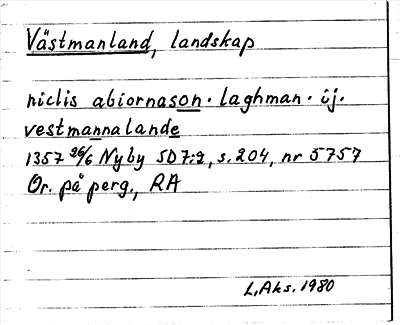 Västmanland, landskap
niclis abiornason. laghman. ij.
vestmannalande
1357 26/6 Nyby SD 7:2, s. 204, nr 5757
Or. på perg., RA
L. Aks. 1980